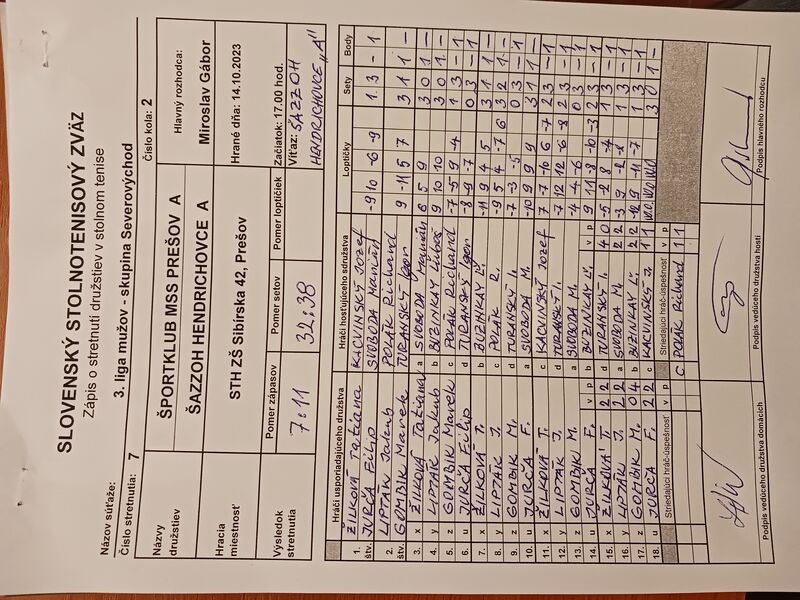 SLOVENSKÝ STOLNOTENISOVÝ ZVÄZ
Zápis o stretnutí družstiev v stolnom tenise
Názov súťaže: 3. liga mužov - skupina Severovýchod
Číslo stretnutia: 7 Číslo kola: 2
Názvy družstiev ŠPORTKLUB MSS PREŠOV A Hlavný rozhodca:
ŠAZZOH HENDRICHOVCE A Miroslav Gábor
Hracia miestnosť STH ZŠ Sibírska 42, Prešov Hrané dňa: 14.10.2023
Výsledok stretnutia Pomer zápasov Pomer setov Pomer loptičiek Začiatok: 17.00 hod.
7:11 32:38 Víťaz: ŠAZZOH HENDRICHOVCE "A"
Hráči usporiadajúceho družstva Hráči hosťujúceho družstva Loptičky Sety Body
1. ŽILKOVÁ Tatiana KACVINSKÝ Jozef
štv. JURČA Filip SVOBODA Marián -9 10 -6 -9 1 3 - 1
2. LIPTÁK Jakub POLÁK Richard
štv. GOMBIK Marek TURANSKÝ Igor 9 -11 5 7 3 1 1 -
3. x ŽILKOVÁ Tatiana a SVOBODA Marián 6 5 9 3 0 1 -
4. y LIPTÁK Jakub b BUZINKAY Ľuboš 9 10 10 3 0 1 -
5. z GOMBIK Marek c POLÁK Richard -7 -5 9 -4 1 3 - 1
6. u JURČA Filip d TURANSKÝ Igor -8 -9 -7 0 3 - 1
7. x ŽILKOVÁ T. b BUZINKAY Ľ. -11 9 4 5 3 1 1 -
8. y LIPTÁK J. c POLÁK R. -9 5 4 -7 6 3 2 1 -
9. z GOMBIK M. d TURANSKÝ I. -7 -3 -5 0 3 - 1
10. u JURČA F. a SVOBODA M. -10 9 9 9 3 1 1 -
11. x ŽILKOVÁ T. c KACVINSKÝ Jozef 7 -7 -10 6 -7 2 3 - 1
12. y LIPTÁK J. d TURANSKÝ I. -7 12 12 -6 -8 2 3 - 1
13. z GOMBIK M. a SVOBODA M. -4 -4 -6 0 3 - 1
14. u JURČA F. v p b BUZINKAY Ľ. v p 9 11 -8 -10 -3 2 3 - 1
15. x ŽILKOVÁ T. 2 2 d TURANSKÝ I. 4 0 -5 -2 8 -4 1 3 - 1
16. y LIPTÁK J. 2 2 a SVOBODA M. 2 2 -3 9 1 3 - 1
17. z GOMBIK M. 0 4 b BUZINKAY Ľ. 2 2 -12 9 -11 -7 1 3 - 1
18. u JURČA F. 2 2 c KACVINSKÝ J. 1 1 w.o. w.o. w.o. 3 0 1 -
Striedajúci hráč-úspešnosť v p Striedajúci hráč-úspešnosť v p
c POLÁK Richard 1 1
Podpis vedúceho družstva domácich Podpis vedúceho družstva hostí Podpis hlavného rozhodcu